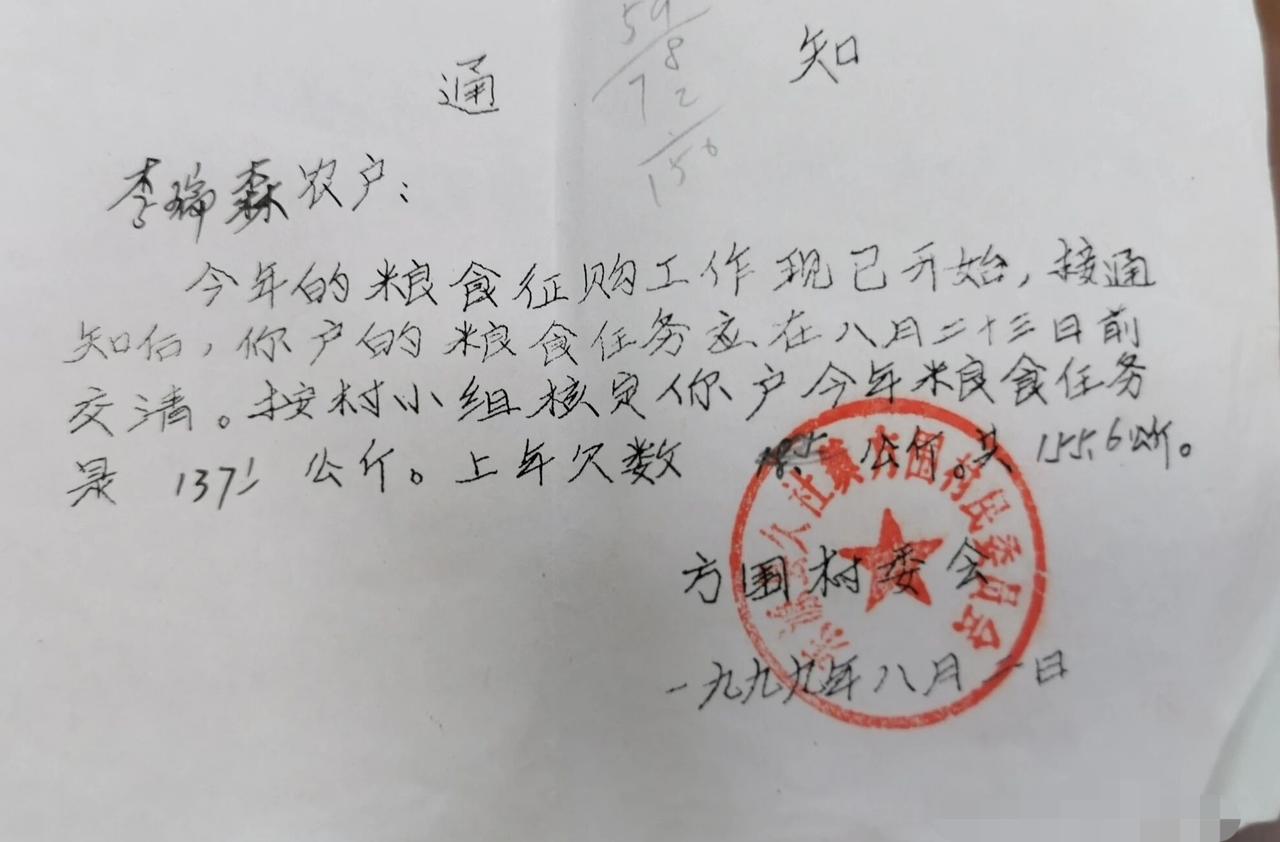 59
8
72
156
通 知
李瑞森农户:
今年的粮食征购工作现已开始,接通
知后,你户的粮食任务应在八月二十三日前
交清。按村小组核定你户今年粮食任务
是 137.1 公斤。上年欠数 18.5 公斤。共 155.6公斤。
久社镇方围村民委员会
方围村委会
一九九九年八月一日